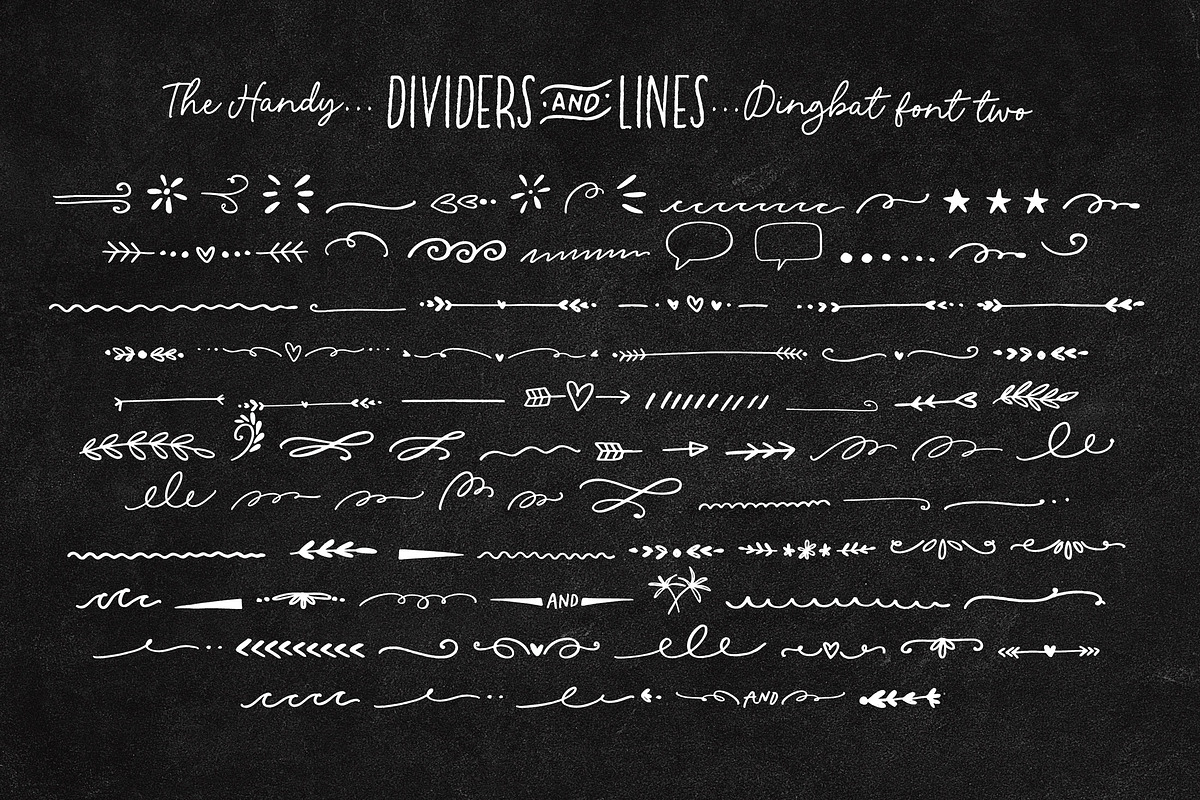 The Handy... DIVIDERS AND LINES ...Dingbat font two
AND
AND